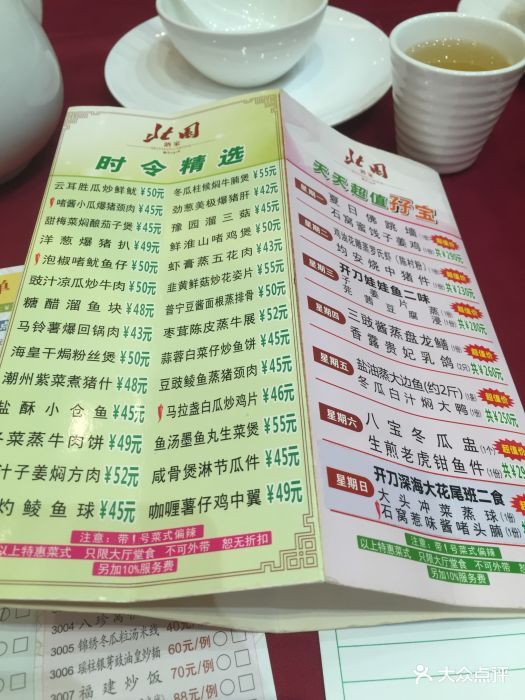 北园
酒家
时令精选
云耳胜瓜炒鲜鱿 ¥50元
啫酱小瓜爆猪颈肉 ¥45元
甜梅菜焖酿茄子煲 ¥45元
洋葱爆猪扒 ¥49元
泡椒啫鱿鱼仔 ¥50元
豉汁凉瓜炒牛肉 ¥50元
糖醋溜鱼块 ¥48元
马铃薯爆回锅肉 ¥43元
海皇干焗粉丝煲 ¥50元
潮州紫菜煮猪什 ¥48元
盐酥小仓鱼 ¥45元
子菜蒸牛肉饼 ¥49元
汁子姜焖方肉 ¥52元
灼鲮鱼球 ¥45元
冬瓜柱候焖牛腩煲 ¥55元
劲葱美极爆猪肝 ¥42元
豫园溜三菇 ¥45元
鲜淮山啫鸡煲 ¥50元
虾膏蒸五花肉 ¥43元
韭黄鲜菇炒花姜片 ¥55元
普宁豆酱面根蒸排骨 ¥50元
枣茸陈皮蒸牛展 ¥52元
蒜蓉白菜仔炒鱼饼 ¥45元
豆豉鲮鱼蒸猪颈肉 ¥45元
马拉盏白瓜炒鸡片 ¥46元
鱼汤墨鱼丸生菜煲 ¥55元
咸骨煲淋节瓜件 ¥45元
咖喱薯仔鸡中翼 ¥49元
注意:带1号菜式偏辣
以上特惠菜式 只限大厅堂食 不可外带 恕无折扣
另加10%服务费
北园
酒家
天天超值孖宝
星期一
夏日佛跳墙(1份)
石窝蜜饯子姜鸡(1份)
超值价
共¥290元
星期二
鸡油花雕蒸罗氏虾(陈村粉)(1份)
均安烧中猪件(1份)
超值价
共¥230元
星期三
开刀娃娃鱼二味
子姜片蒸(1份)
煎豆腐浸(1份)
超值价
共¥280元
星期四
三豉酱蒸盘龙鳝(1份)
香露贵妃乳鸽(2只)
超值价
共¥260元
星期五
盐油蒸大边鱼(约2斤)(1条)
冬瓜白汁焖大鸭(1份)
超值价
共¥250元
星期六
八宝冬瓜盅(1个)
生煎老虎钳鱼件(1份)
超值价
星期日
开刀深海大花尾班二食
大头冲菜蒸球(1份)
石窝惹味酱啫头腩(1份)
超值价
注意:带1号菜式偏辣
以上特惠菜式 只限大厅堂食 不可外带 恕无折扣
另加10%服务费
3004
3005 锦绣冬瓜粒汤米线 60元/例
3006 瑶柱银芽豉油皇炒面 70元/例
3007 福建炒饭 88元/例
大众点评